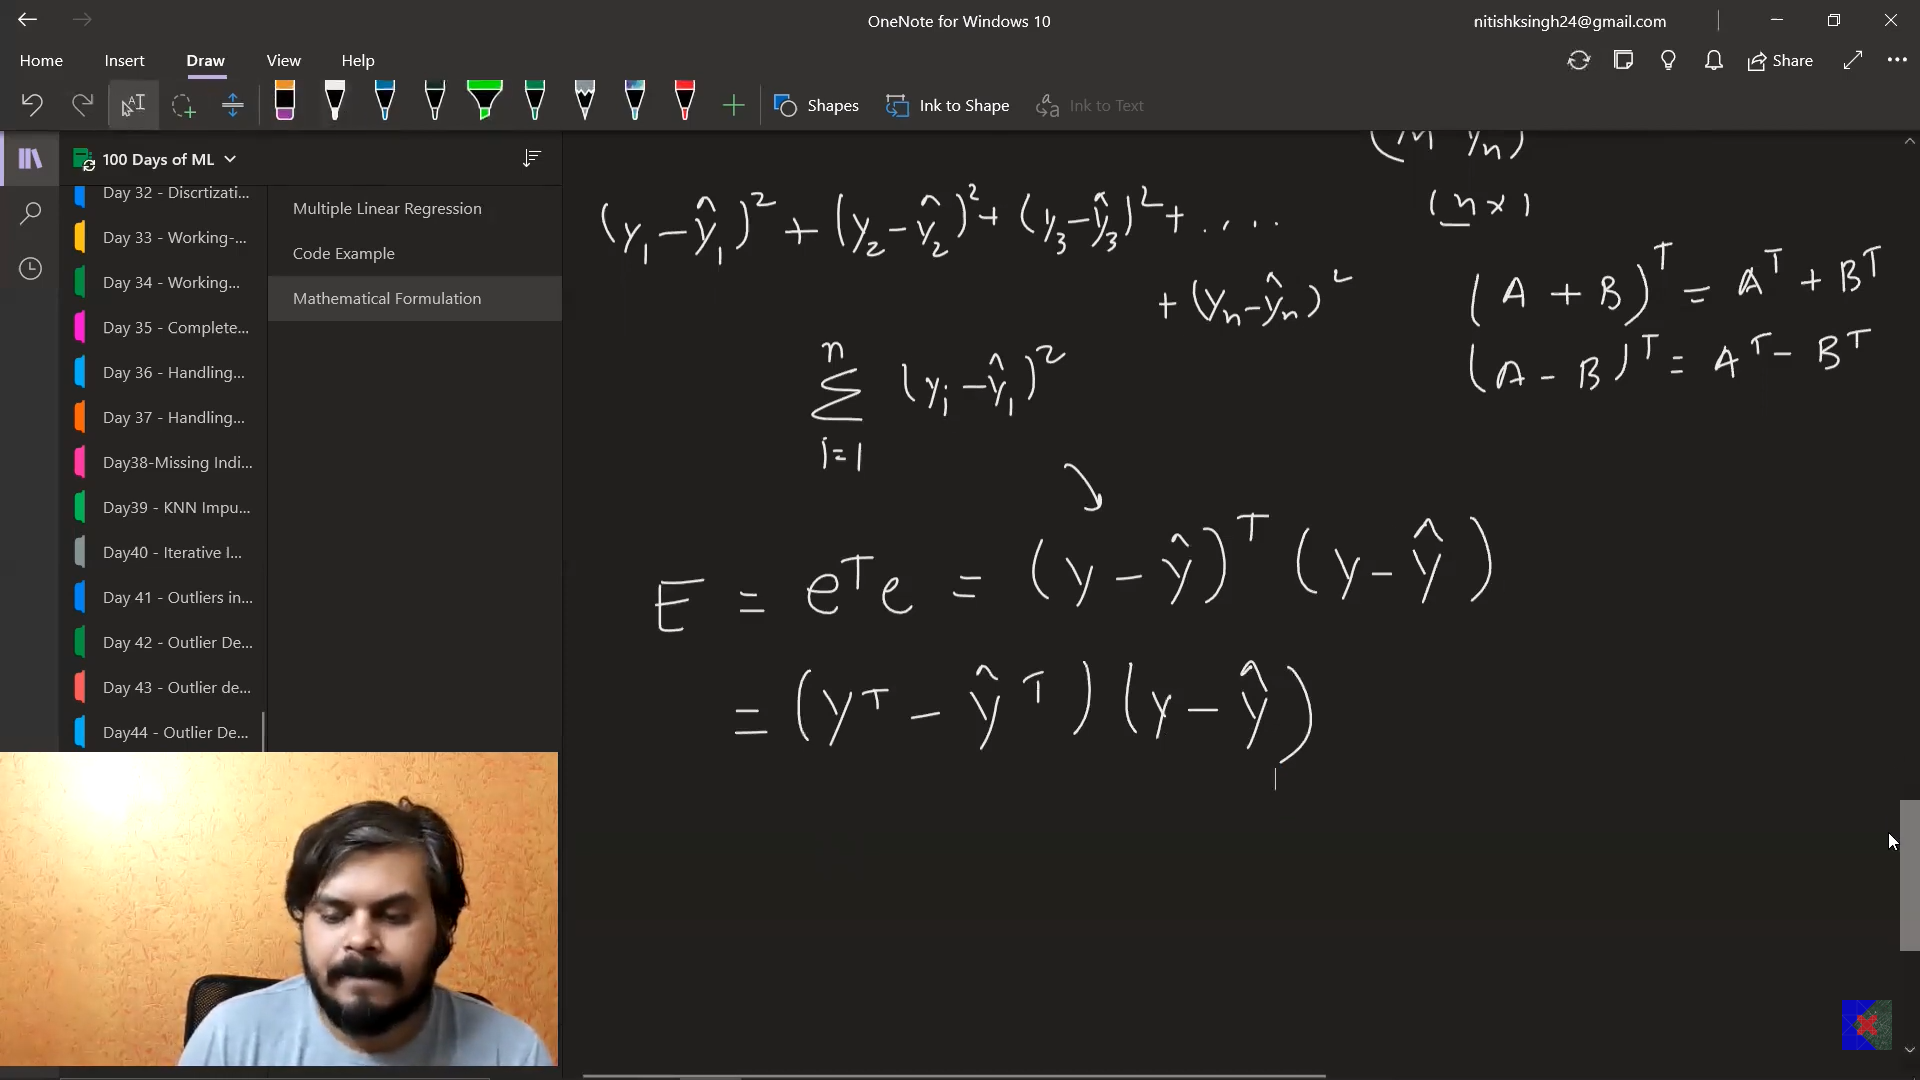 OneNote for Windows 10
nitishksingh24@gmail.com
Home Insert Draw View Help
Share
Shapes Ink to Shape Ink to Text
100 Days of ML
Day 32 - Discrtizati...
Day 33 - Working-...
Day 34 - Working...
Day 35 - Complete...
Day 36 - Handling...
Day 37 - Handling...
Day38-Missing Indi...
Day39 - KNN Impu...
Day40 - Iterative I...
Day 41 - Outliers in...
Day 42 - Outlier De...
Day 43 - Outlier de...
Day44 - Outlier De...
Multiple Linear Regression
Code Example
Mathematical Formulation
(n x 1
(y₁ - ŷ₁)² + (y₂ - ŷ₂)² + (y₃ - ŷ₃)² + ....
+ (yₙ - ŷₙ)²
(A + B)ᵀ = Aᵀ + Bᵀ
(A - B)ᵀ = Aᵀ - Bᵀ
n
∑ (yᵢ - ŷ₁)²
i=1
E = eᵀe = (y - ŷ)ᵀ (y - ŷ)
= (yᵀ - ŷᵀ) (y - ŷ)